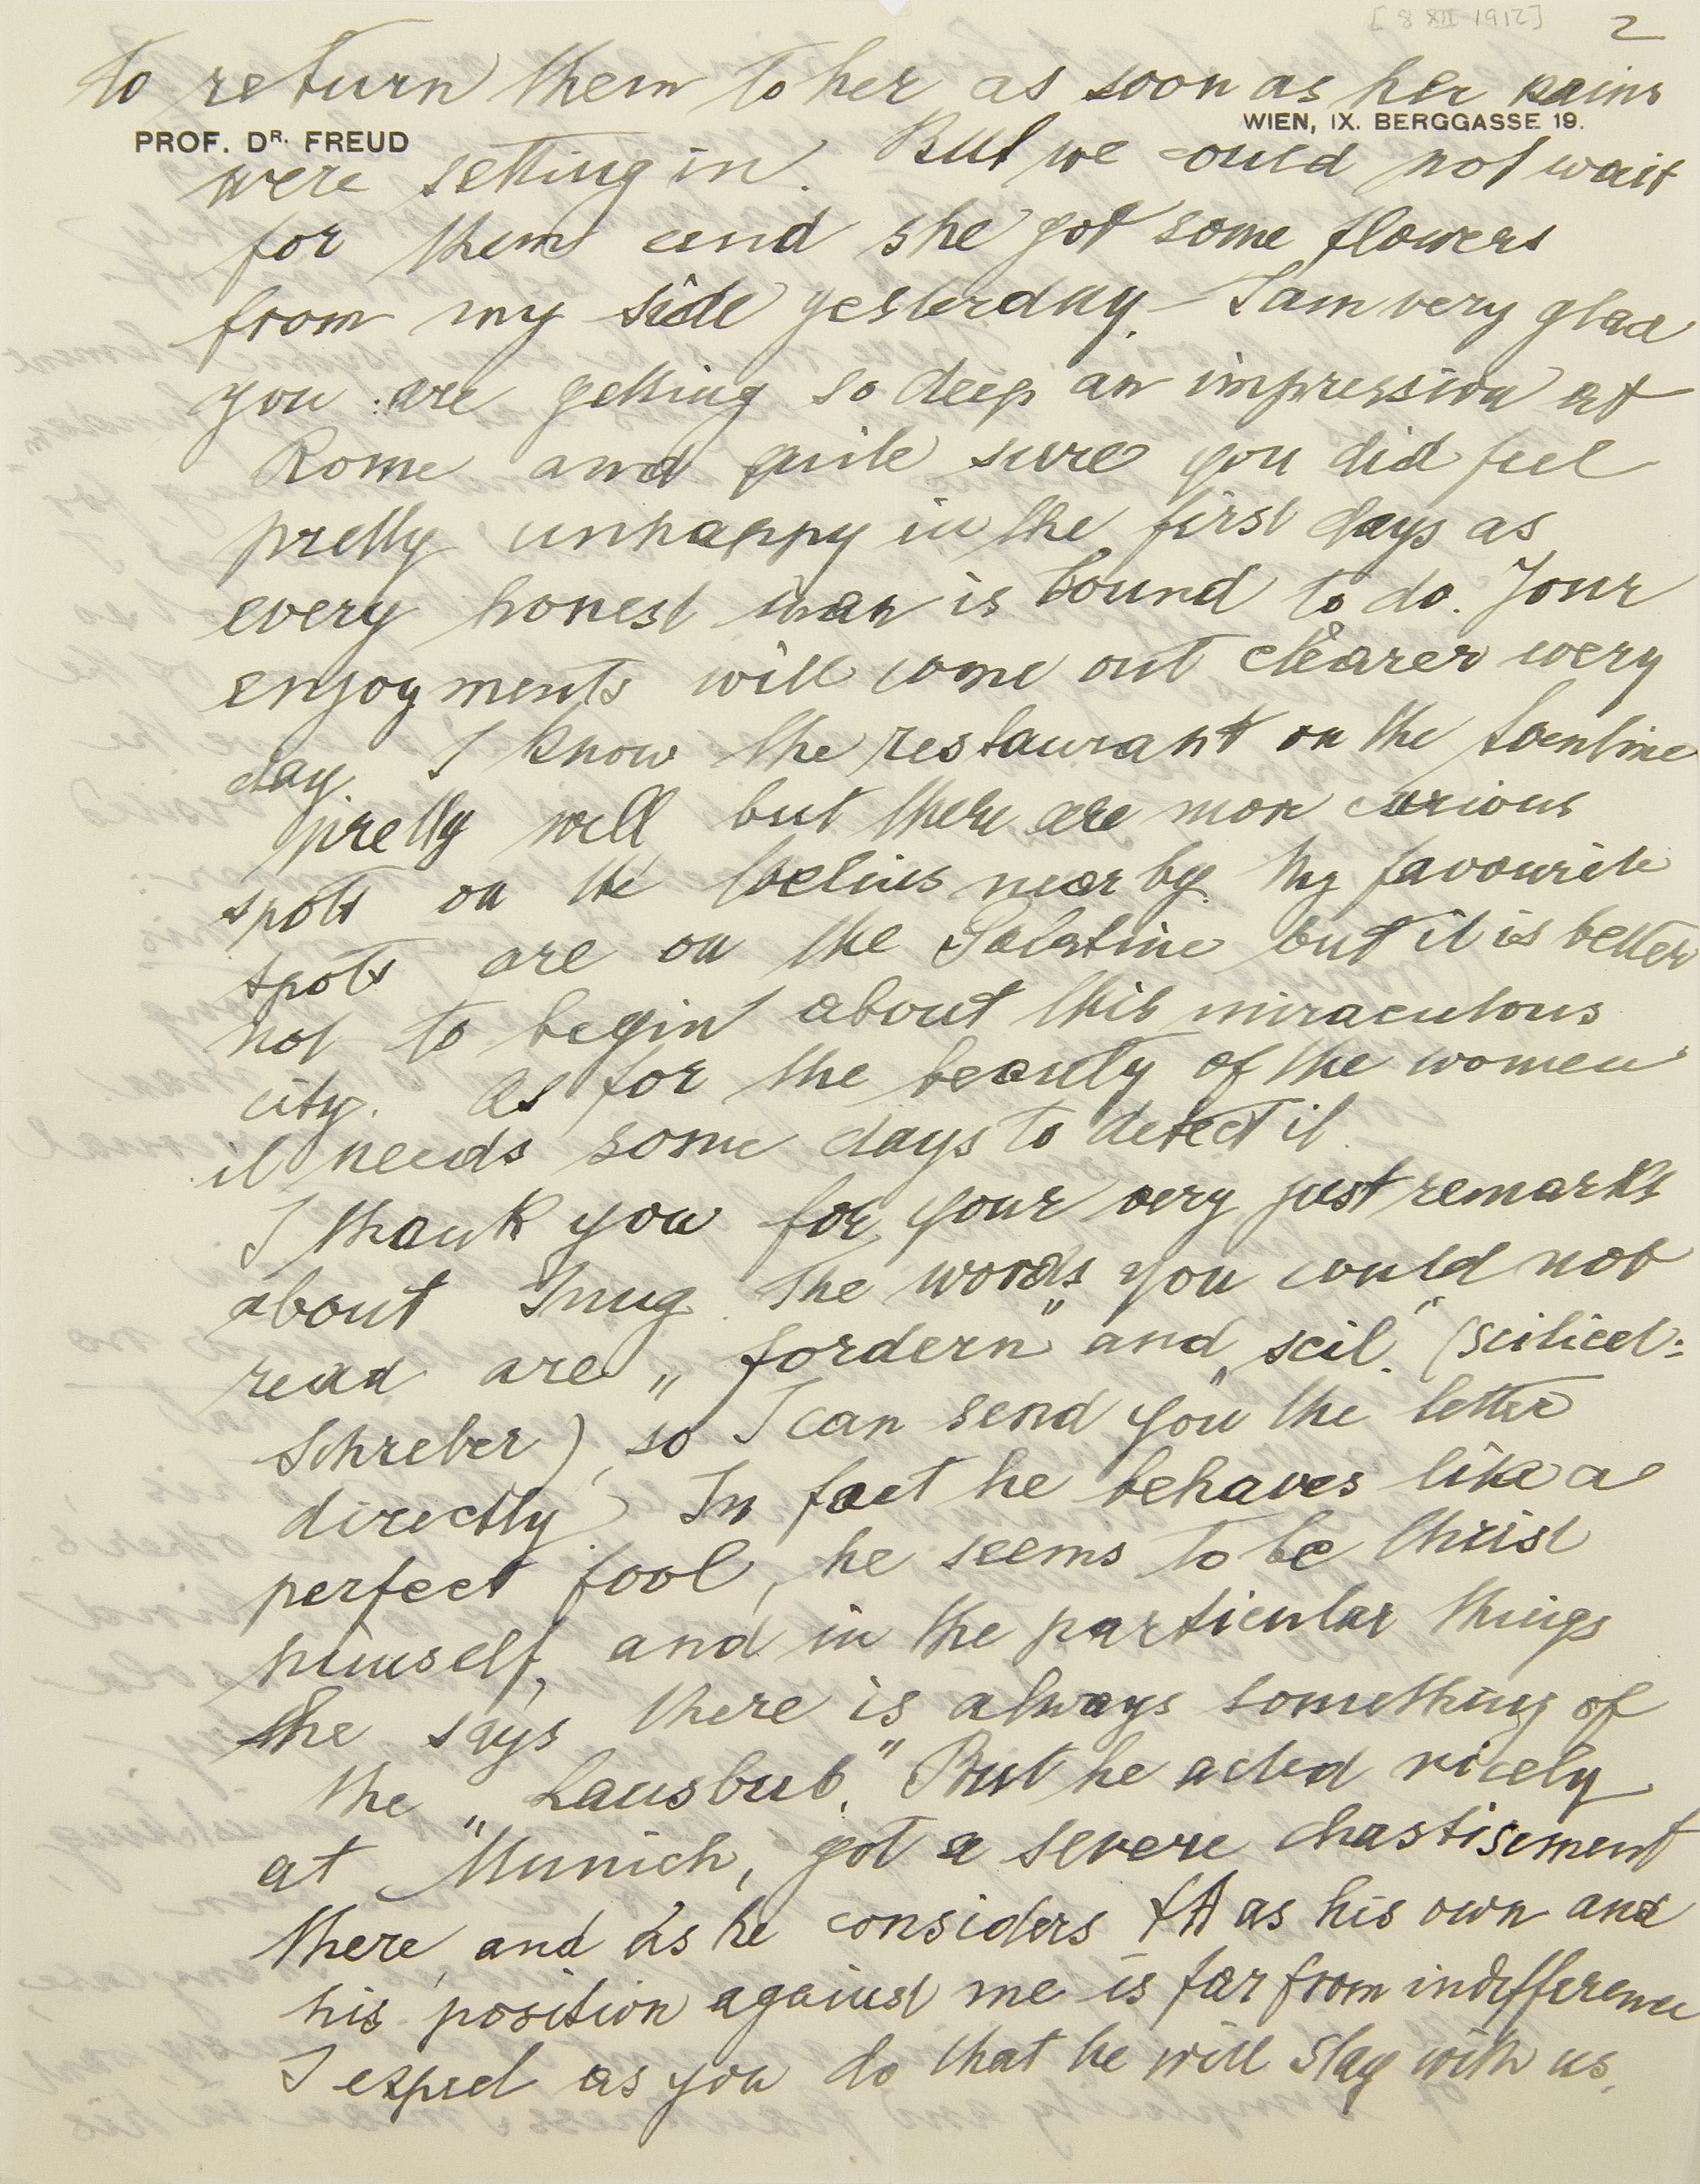 [8 XII 1912]
2
to return them to her as soon as her pains
PROF. DR. FREUD
WIEN, IX. BERGGASSE 19.
were setting in. But we could not wait
for them and she got some flowers
from my side yesterday. I am very glad
you are getting so deep an impression at
Rome and quite sure you did feel
pretty unhappy in the first days as
every honest man is bound to do. Your
enjoyments will come out clearer every
day. I know the restaurant on the
pretty well but there are more curious
spots on the Coelius near by. My favourite
spots are on the Palatine but it is better
not to begin about this miraculous
city. As for the beauty of the women
it needs some days to detect it.
I thank you for your very just remarks
about Jung. The words you could not
read are „fordern" and „scil." (scilicet:
Schreber), so I can send you the letter
directly) In fact he behaves like a
perfect fool, he seems to be Christ
himself, and in the particular things
he says there is always something of
the „Lausbub." But he acted nicely
at Munich, got a severe chastisement
there, and as he considers ΨA as his own and
his position against me is far from indifference
I expect as you do that he will stay with us.